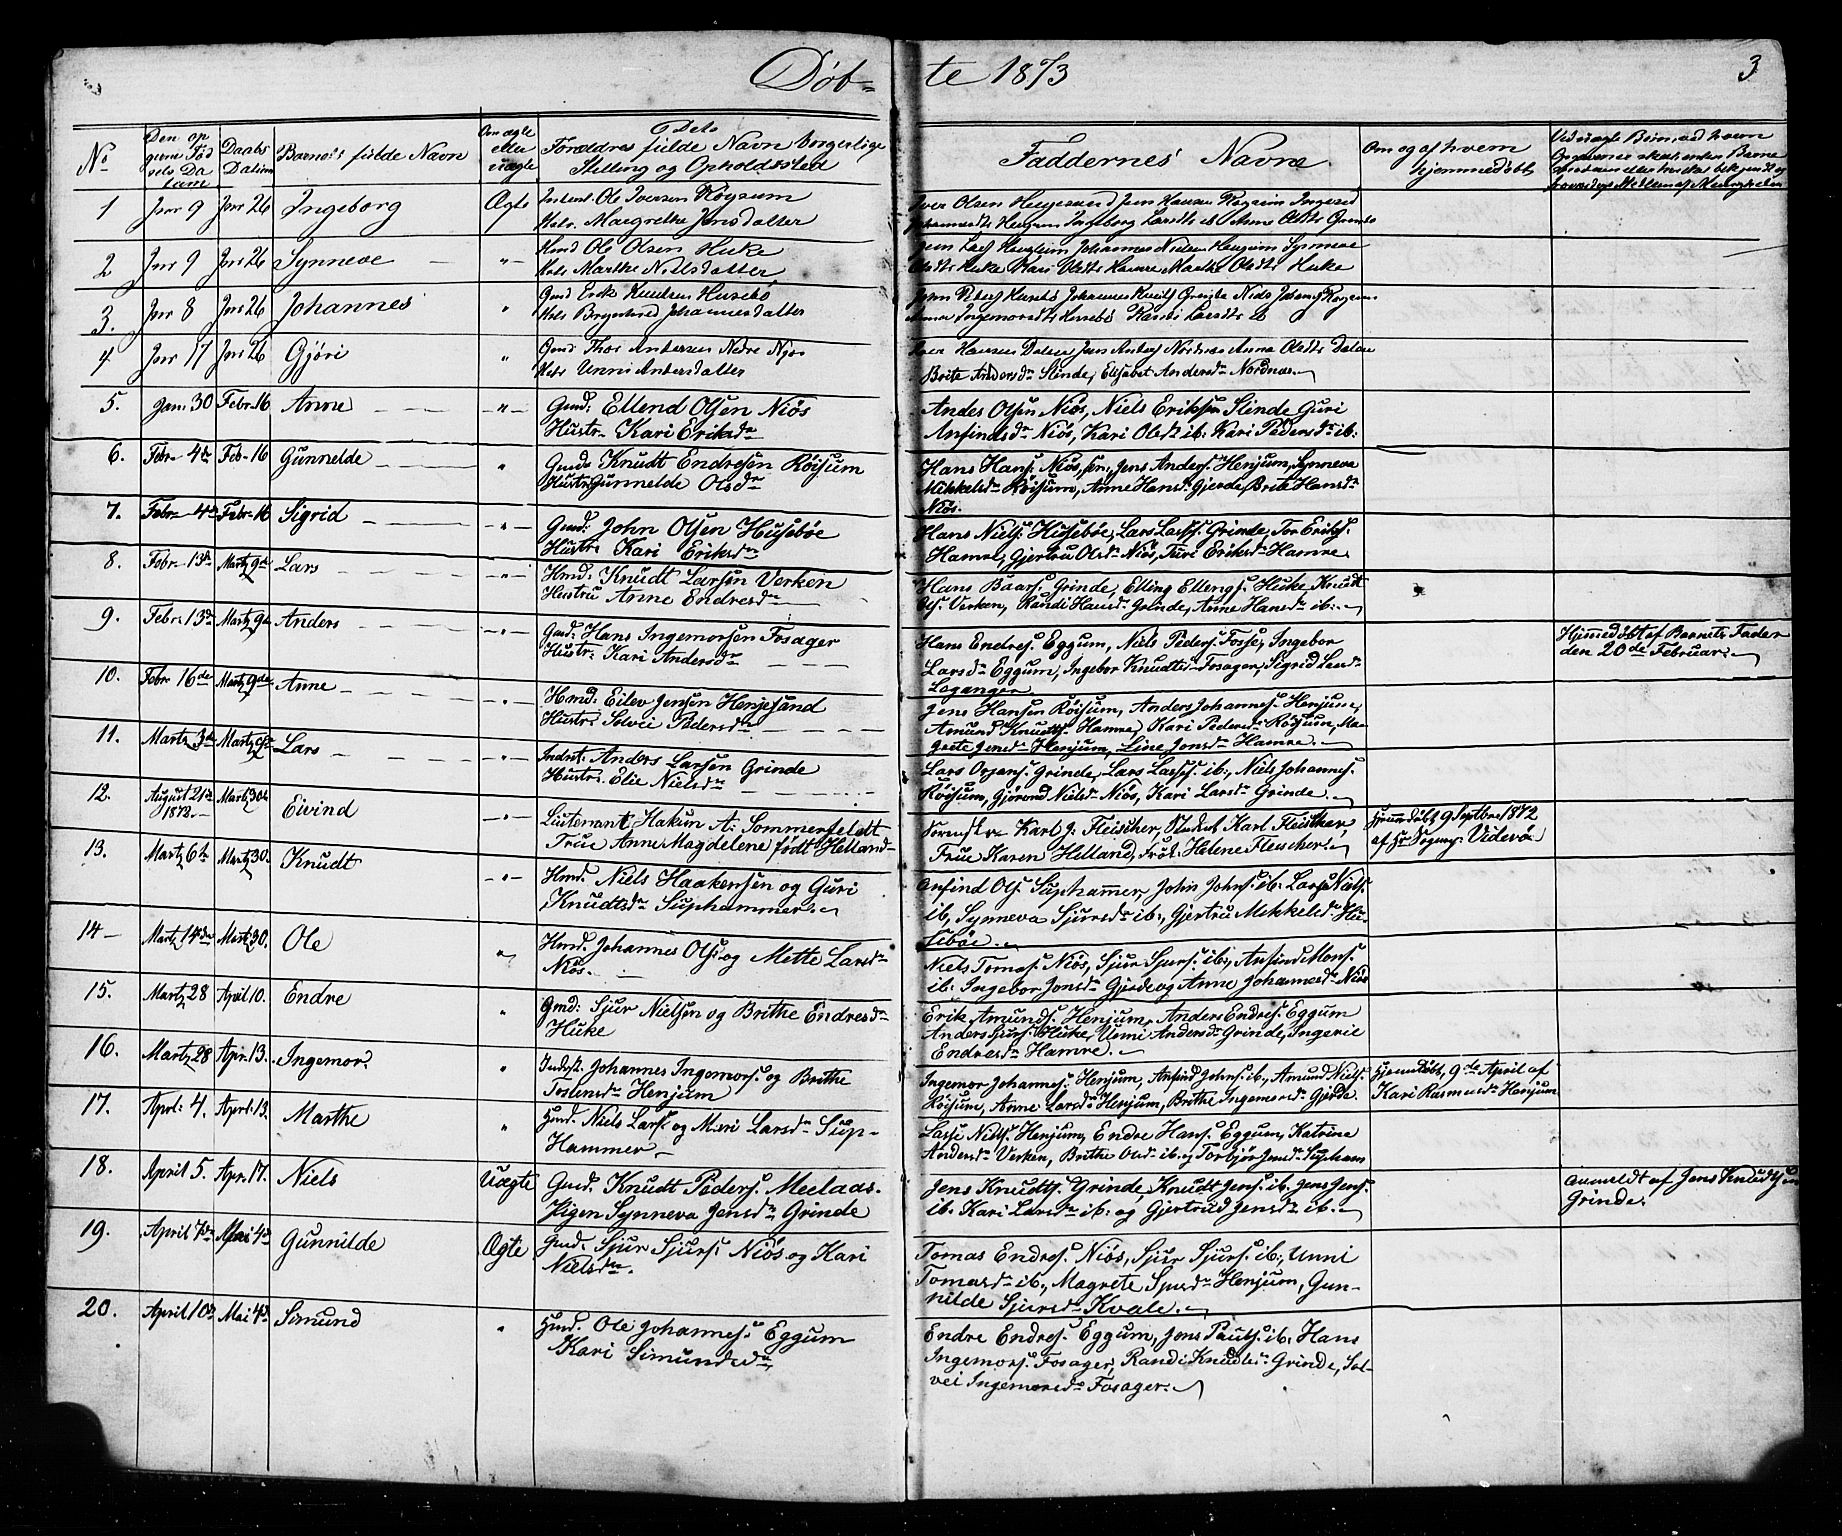 Døb- te 1873
3
No
Den op
givne Fød
sels Da
tum
Daabs
Datum
Barnets fulde Navn
Om ægte
eller
uægte
Dets
Forældres fulde Navn borgerlige
Stilling og Opholdssted
Faddernes Navne.
Om og af hvem
hjemmedøbt
Ved uægte Børn, ved hvem
1 Jnr 9 Jnr 26 Ingeborg Ægte Inderst Ole Iversen Røysum
Hstr. Margrethe Jensdatter
Iver Olsen Jens Hansen Røysum Ingerid
Ingeborg Larsdtr ib Anne Olsdtr Grinde
2 Jnr 9 Jnr 26 Synneve — -"- Hmd Ole Olsen Huke
Hstr Marthe Nilsdatter
Jens Henjum Johannes Nielsen Henjum Synneve
Olsdtr Huke Kari Olsdtr Hamre Marthe Olsdtr Huke
3. Jnr 8 Jnr 26 Johannes " Gmd Erik Knudsen Husebö
Hstr Johannesdatter
Husebö Johannes Knuts Grinde Niels Johans Røysum
Husebö Larsdtr ib
4 Jnr 17 Jnr 26 Gjöri " Gmd Thor Andersen Nedre Njøs
Hstr Unni Andersdatter
Iver Hansen Dalen Jens Anders Nordnæs Anna Olsdtr Dalen
Brite Andersdr Slinde, Elisabet Andersdr Nordnæs.
5. Jan: 30 Febr. 16 Anne — — — -"- Gmd: Ellend Olsen Niös
Hustr. Kari Eriksdr
Andes Olsen Niös, Niels Eriksen Slinde Guri
Anfindsdr Niös, Kari Olsdr ib: Kari Pedersdr ib:
6. Febr 4de Feb. 16 Gunnelde — — " Gmd: Knudt Endresen Röisum
Hustr: Gunnelde Olsdr
Hans Hans: Niös, sen:, Jens Anders: Henjum, Synneva
Mikkelsdr Röisum, Anne Hansdr Gjerde, Brite Hansdr
Niös.
7. Febr 4de Febr 16 Sigrid — — — -"- Gmd: John Olsen Husebøe
Hustr: Kari Eriksdr
Hans Niels: Husebøe, Lars Lasses: Grinde, Tor Eriks:
Hamre, Gjertru Olsdr Niös, Turi Eriksdr Hamre
8. Febr. 13de Martz 9de Lars — — -"- Hmd: Knudt Larsen Verken
Hustru Anne Endresdr
Hans Baars: Grinde, Elling Ellings: Huke, Knudt
Ols: Verken, Randi Hansdr Grinde, Anne Hansdr ib:
9. Febr: 13de Martz 9de Anders -"- Gmd: Hans Ingemorsen Fosager
Hustr: Kari Andersdr — — —
Hans Endres: Eggum, Niels Peders: Fosse, Ingebor
Larsdr Eggum, Ingebor Knudtsdr Fosager, Sigrid
Leganger
Hjemedöbt af Barnets Fader
den 20de Februar.
10. Febr 16de Martz 9de Anne — — -"- Hmd: Eilev Jensen Henjesand
Hustr: Solvei Pedersdr — — — —
Jens Hansen Röisum, Anders Johannes: Henjum,
Amund Knudts: Hamre, Kari Pedersdr Röisum, Ma-
grete Jensdr Henjum, Line Jonsdr Hamre.
11. Martz 3de Martz Lars — -"- Indrst: Anders Larsen Grinde
Hustr: Elie Nielsdr — — —
Lars Orjans: Grinde, Lars Lasses: ib:, Niels Johannes:
Röisum, Gjörond Nielsdr Niös, Kari Larsdr Grinde.
12. August 21de
1872.
Martz 30de Eivind -"- Liutenant Hakun A: Sommerfeldt
Frue Anne Magdelene født Helland
Karl J: Fleischer, Student Karl Fleischer,
Frue Karen Helland, Frøk: Helene Fleischer.
Hjemedöbt 9 Septbr 1872
af Hr Sogneprs: Videröe
13. Martz 6te Martz 30. Knudt -"- Hmd: Niels Haakensen og Guri
Knudtsdr Suphammer.
Anfind Ols: Suphammer, John Johns: ib: Lars Niels:
ib, Synneva Sjursdr ib:, Gjertru Mekkelsdr Hu-
seböe.
14 — Martz 14de Martz 30. Ole " Hmd. Johannes Ols: og Mette Larsdr
Niös.
Niels Tomas: Niös, Sjur Sjurs: ib:, Anfind Mons:
ib: Ingebor Jonsdr Gjerde og Anne Johannesdr Niös
15. Martz 28 April 10. Endre " Gmd: Sjur Nielsen og Brithe Endresdr
Huke
Erik Amunds: Henjum, Anders Endres: Eggum
Anders Sjurs: Huke, Unni Andersdr Grinde, Ingerie
Endresdr Hamre.
16. Martz 28 Apr. 13. Ingemor. " Indst: Johannes Ingemors: og Brithe
Tostensdr Henjum
Ingemor Johannes: Henjum, Anfind Johns: ib:, Amund Niels:
Röisum, Anne Larsdr Henjum, Brithe Ingemorsdr Gjerde.
Hjemdöbt, 9de April af
Kari Rasmusdr Henjum
17. Aprl: 4. Aprl. 13. Marthe " Hmd: Niels Lars: og Mari Larsdr Sup-
Hammer —
Lasse Niels: Henjum, Endre Hans: Eggum, Katrine
Andersdr Verken, Brithe Olsdr ib: og Torbjör Jensdr Supham
18. April 5. Apr. 17. Niels Uægte Gmd. Knudt Peders: Meelaas.
Pigen Synneva Jensdr Grinde
Jens Knudts: Grinde, Knudt Jens: ib. Jens Jens:
ib: Kari Larsdr ib: og Gjertrud Jensdr ib.
anmeldt af Jens Knudtsen
Grinde.
19. April 7de Mai 4de Gunnilde Ægte Gmd: Sjur Sjurs: Niös og Kari
Nielsdr.
Tomas Endres: Niös, Sjur Sjurs: ib:, Unni
Tomasdr ib:, Magrete Henjum, Gun-
nilde Sjursdr Kvale.
20. April 10de Mai 4de Simund " Hmd. Ole Johannes: Eggum
Kari Simundsdr
Endre Endres: Eggum, Jens Pauls: ib: Hans
Ingemors: Fosager, Randi Knudtsdr Grinde, Sol-
vei Ingemorsdr Fosager.